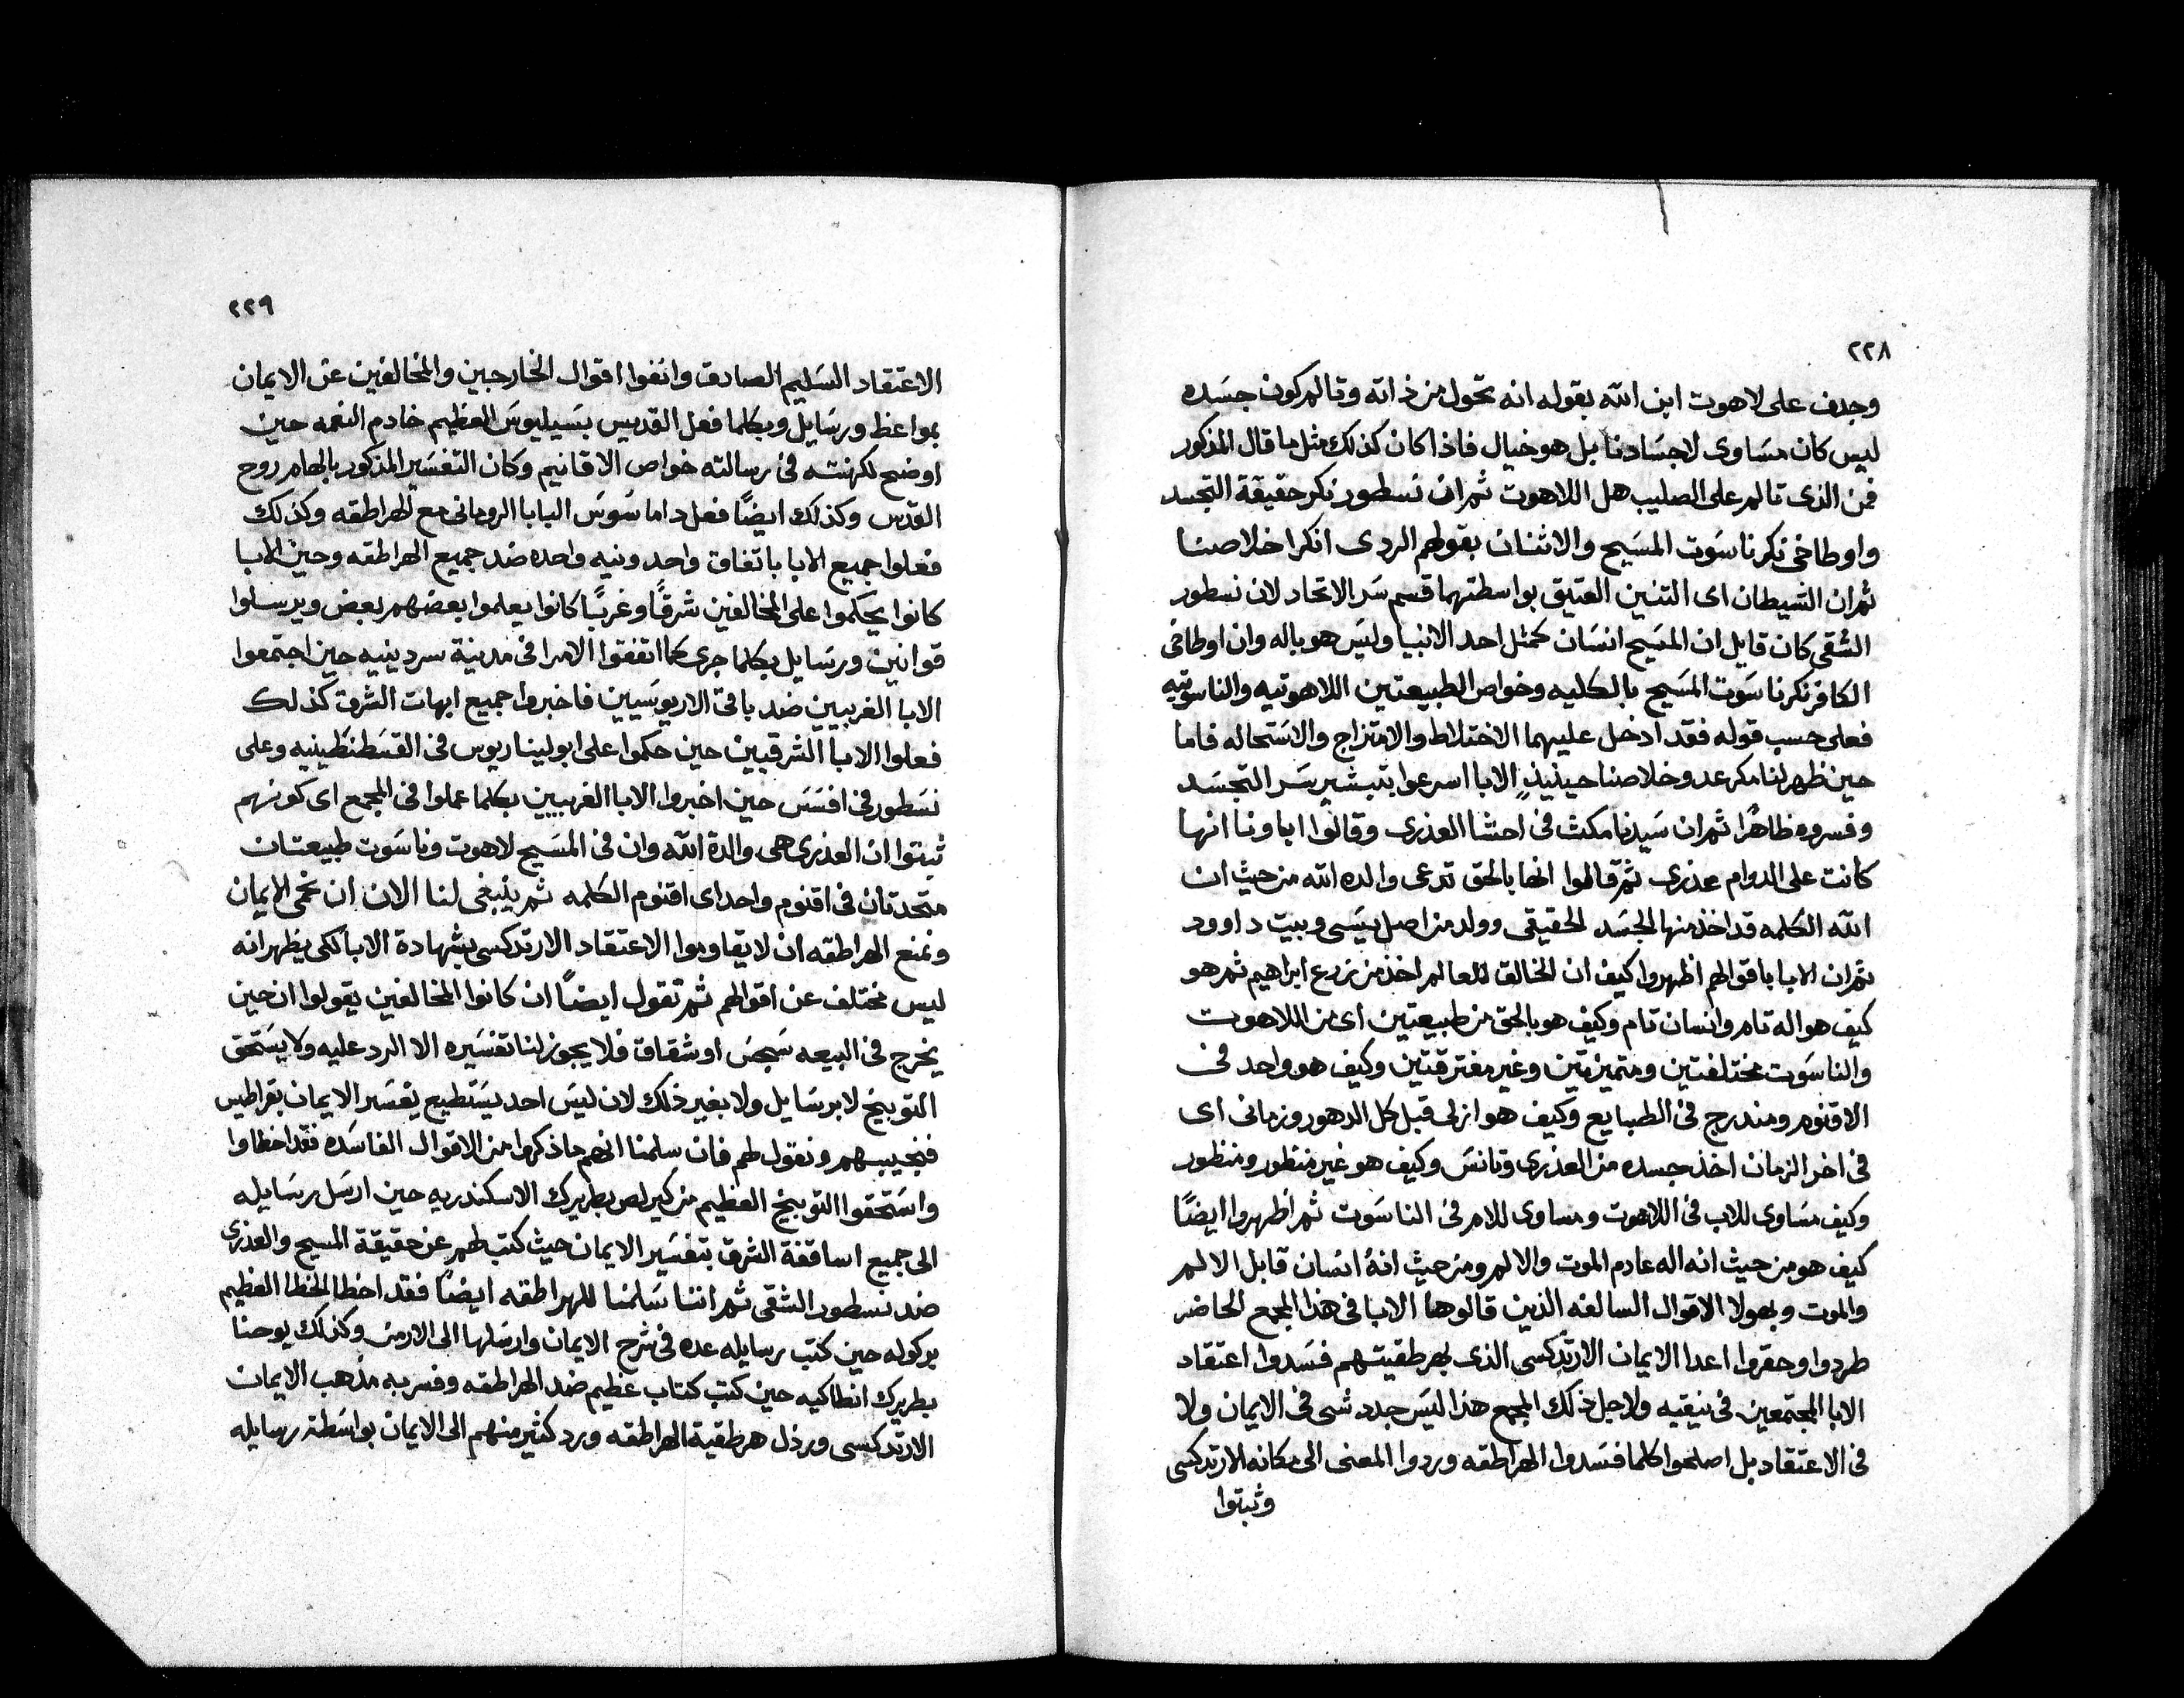 ٢٢٨
وجدف على لاهوت ابن الله بقوله انه تحول من ذاته وتالم كون جسده
ليس كان مساوى لاجسادنا بل هو خيال فاذا كان كذلك مثل ما قال المذكور
فمن الذى تالم على الصليب هل اللاهوت ثم ان نسطور نكر حقيقة التجسد
واوطاخى نكر ناسوت المسيح والاثنان بقولهم الردى انكرا خلاصنا
ثم ان الشيطان اى التنين العتيق بواسطتهما قسم سر الاتحاد لان نسطور
الشقى كان قايل ان المسيح انسان كمثل احد الانبيا وليس هو باله وان اوطاخى
الكافر نكر ناسوت المسيح بالكليه وخواص الطبيعتين اللاهوتيه والناسوتيه
فعلى حسب قوله فقد ادخل عليهما الاختلاط والامتزاج والاستحاله فاما
حين ظهر لنا مكر عدو خلاصنا حينيذٍ الابا اسرعوا بتبشير سر التجسد
وفسروه ظاهرًا ثم ان سيدنا مكث فى احشا العذرى وقالوا اباونا انها
كانت على الدوام عذرى ثم قالوا انها بالحق تدعى والده الله من حيث ان
الله الكلمه قد اخذ منها الجسد الحقيقى وولد من اصل يسى وبيت داوود
ثم ان الابا باقوالهم اظهروا كيف ان الخالق للعالم اخذ من زرع ابراهيم ثم هو
كيف هو اله تام وانسان تام وكيف هو بالحق من طبيعتين اى من اللاهوت
والناسوت مختلفتين ومتميزتين وغير مفترقتين وكيف هو واحد فى
الاقنوم ومندرج فى الطبايع وكيف هو ازلى قبل كل الدهور وزمانى اى
فى اخر الزمان اخذ جسده من العذرى وتانس وكيف هو غير منظور ومنظور
وكيف مساوى للاب فى اللاهوت ومساوى للام فى الناسوت ثم اظهروا ايضًا
كيف هو من حيث انه اله عادم الموت والالم ومن حيث انهُ انسان قابل الالم
والموت وبهولا الاقوال السالفه الذين قالوها الابا فى هذا المجمع الحاضر
طردوا وحقروا اعدا الايمان الارتدكسى الذى بهرطقيتهم فسدوا اعتقاد
الابا المجتمعين فى نيقيه ولاجل ذلك المجمع هذا ليس جدد شى فى الايمان ولا
فى الاعتقاد بل اصلحوا كلما فسدوا الهراطقه وردوا المعنى الى مكانه الارتدكسى
وثبتوا
٢٢٩
الاعتقاد السليم الصادق وانفوا اقوال الخارجين والمخالفين عن الايمان
بمواعظ ورسايل وبكلما فعل القديس بسيليوس العظيم خادم النعمه حين
اوضح لكهنته فى رسالته خواص الاقانيم وكان التفسير المذكور بالهام روح
القدس وكذلك ايضًا فعل داماسوس البابا الرومانى مع الهراطقه وكذلك
فعلوا جميع الابا باتفاق واحد ونيه واحده ضد جميع الهراطقه وحين الابا
كانوا يحكموا على المخالفين شرقًا وغربًا كانوا يعلموا بعضهم بعض ويرسلوا
قوانين ورسايل بكلما جرى كما اتفقوا الامرا فى مدينة سردينيه حين اجتمعوا
الابا الغربيين ضد باقى الاريوسيين فاخبروا جميع ابهات الشرق كذلك
فعلوا الابا الشرقيين حين حكموا على ابوليناريوس فى القسطنطينيه وعلى
نسطور فى افسس حين اخبروا الابا الغربيين بكلما عملوا فى المجمع اى كونهم
ثبتوا ان العذرى هى والدة الله وان فى المسيح لاهوت وناسوت طبيعتان
متحدتان فى اقنوم واحد اى اقنوم الكلمه ثم ينبغى لنا الان ان نحمى الايمان
ونمنع الهراطقه ان لا يقاوموا الاعتقاد الارتدكسى بشهادة الابا لكى يظهر انه
ليس مختلف عن اقوالهم ثم تقول ايضًا ان كانوا المخالفين يقولوا ان حين
يخرج فى البيعه سجس او شقاق فلا يجوز لنا تفسيره الا الرد عليه ولا يستحق
التوبيخ لا برسايل ولا بغير ذلك لان ليس احد يستطيع يفسر الايمان بقراطيس
فنجيبهم ونقول لهم فان سلمنا انهم ما ذكروا من الاقوال الفاسده فقد اخطاوا
واستحقوا التوبيخ العظيم من كيرلص بطريرك الاسكندريه حين ارسل رسايله
الى جميع اساقفة الشرق بتفسير الايمان حيث كتب لهم عن حقيقة المسيح والعذرى
ضد نسطور الشقى ثم اننا سلمنا للهراطقه ايضًا فقد اخطا الخطا العظيم
بركوله حين كتب رسايله عده فى شرح الايمان وارسلها الى الارمن وكذلك يوحنا
بطريرك انطاكيه حين كتب كتاب عظيم ضد الهراطقه وفسر به مذهب الايمان
الارتدكسى ورذل هرطقية الهراطقه ورد كثير منهم الى الايمان بواسطة رسايله